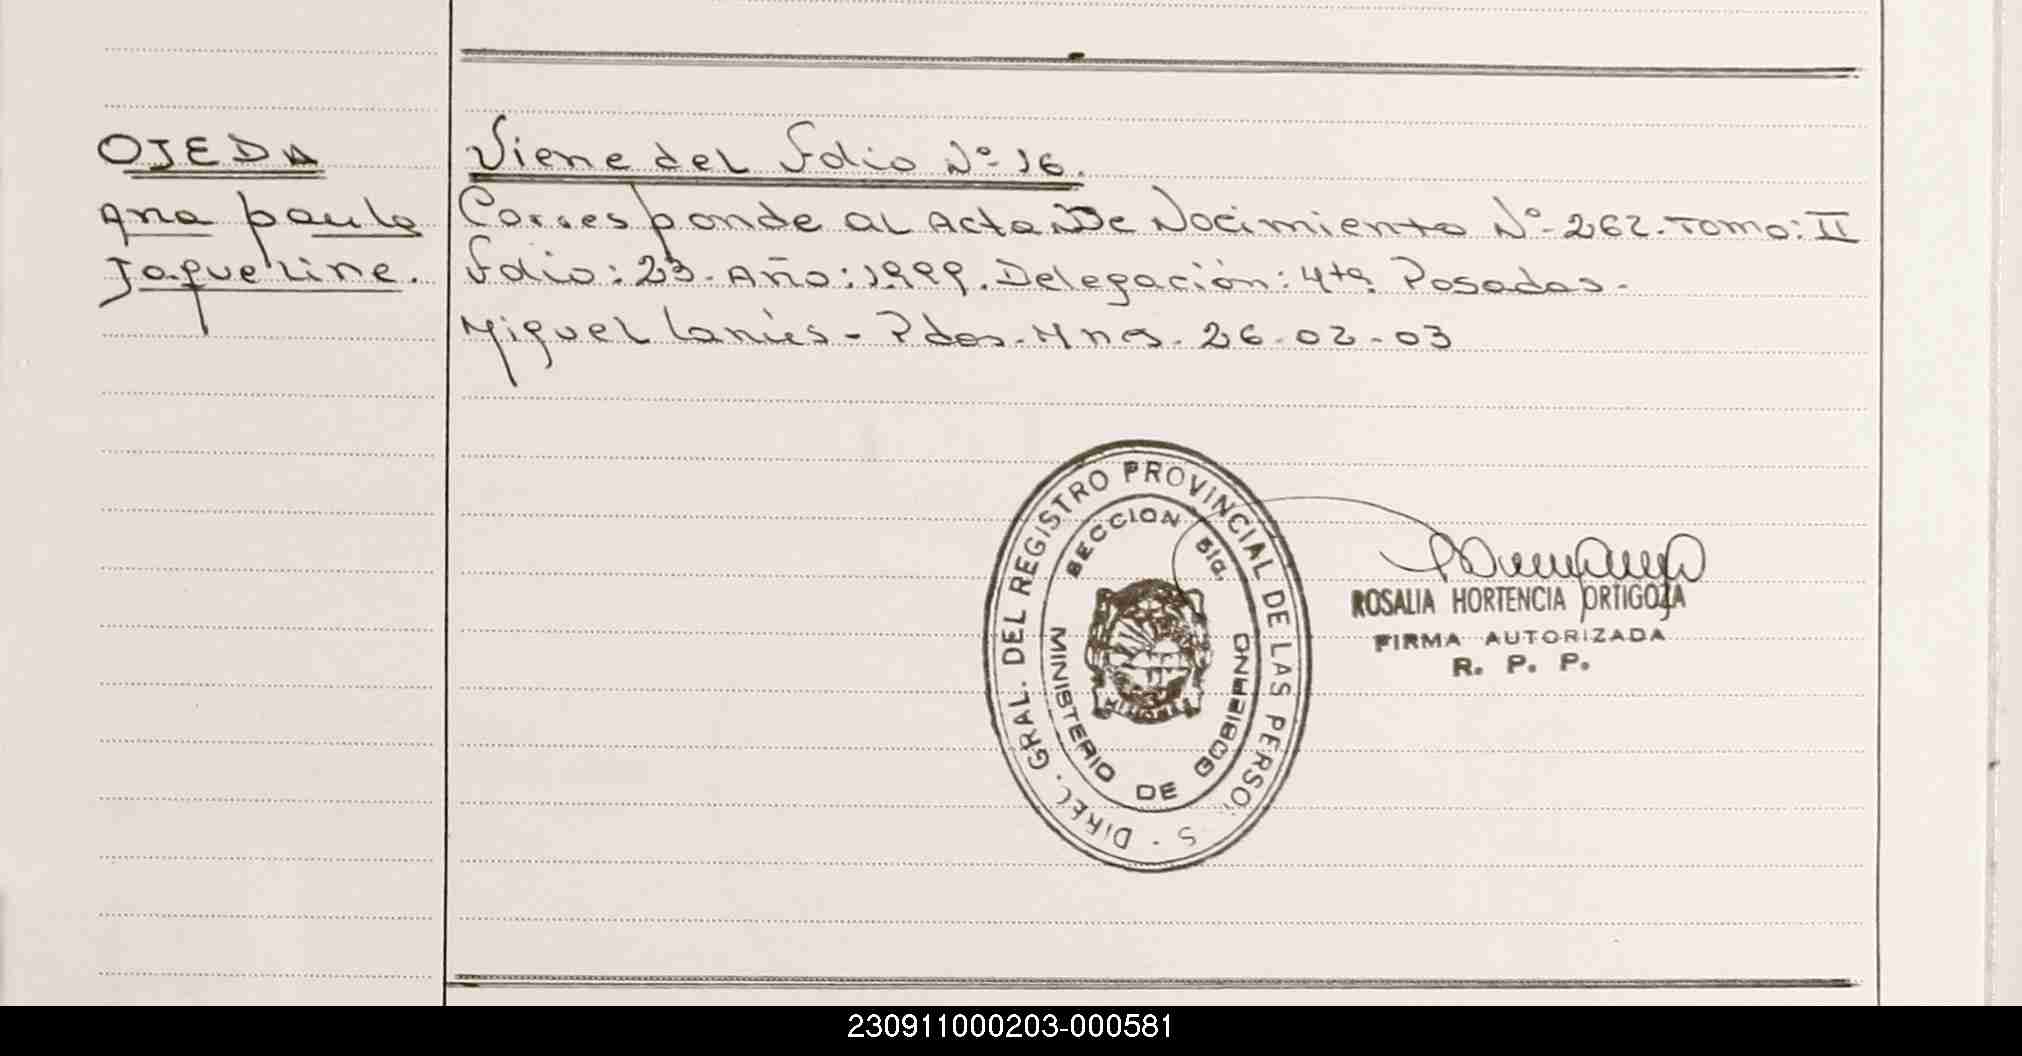 OJEDA
Ana paula
Jaqueline.
Viene del Folio Nº 16.
Corresponde al Acta De Nacimiento Nº 262. Tomo: II
Folio: 23. Año: 1999. Delegación: 4ta. Posadas.
Miguel Lanús - Pdas. Mnes. 26-02-03
DIREC. GRAL. DEL REGISTRO PROVINCIAL DE LAS PERSO. S
SECCION 5ta.
MINISTERIO DE GOBIERNO
MISIONES
ROSALIA HORTENCIA ORTIGOZA
FIRMA AUTORIZADA
R. P. P.
230911000203-000581